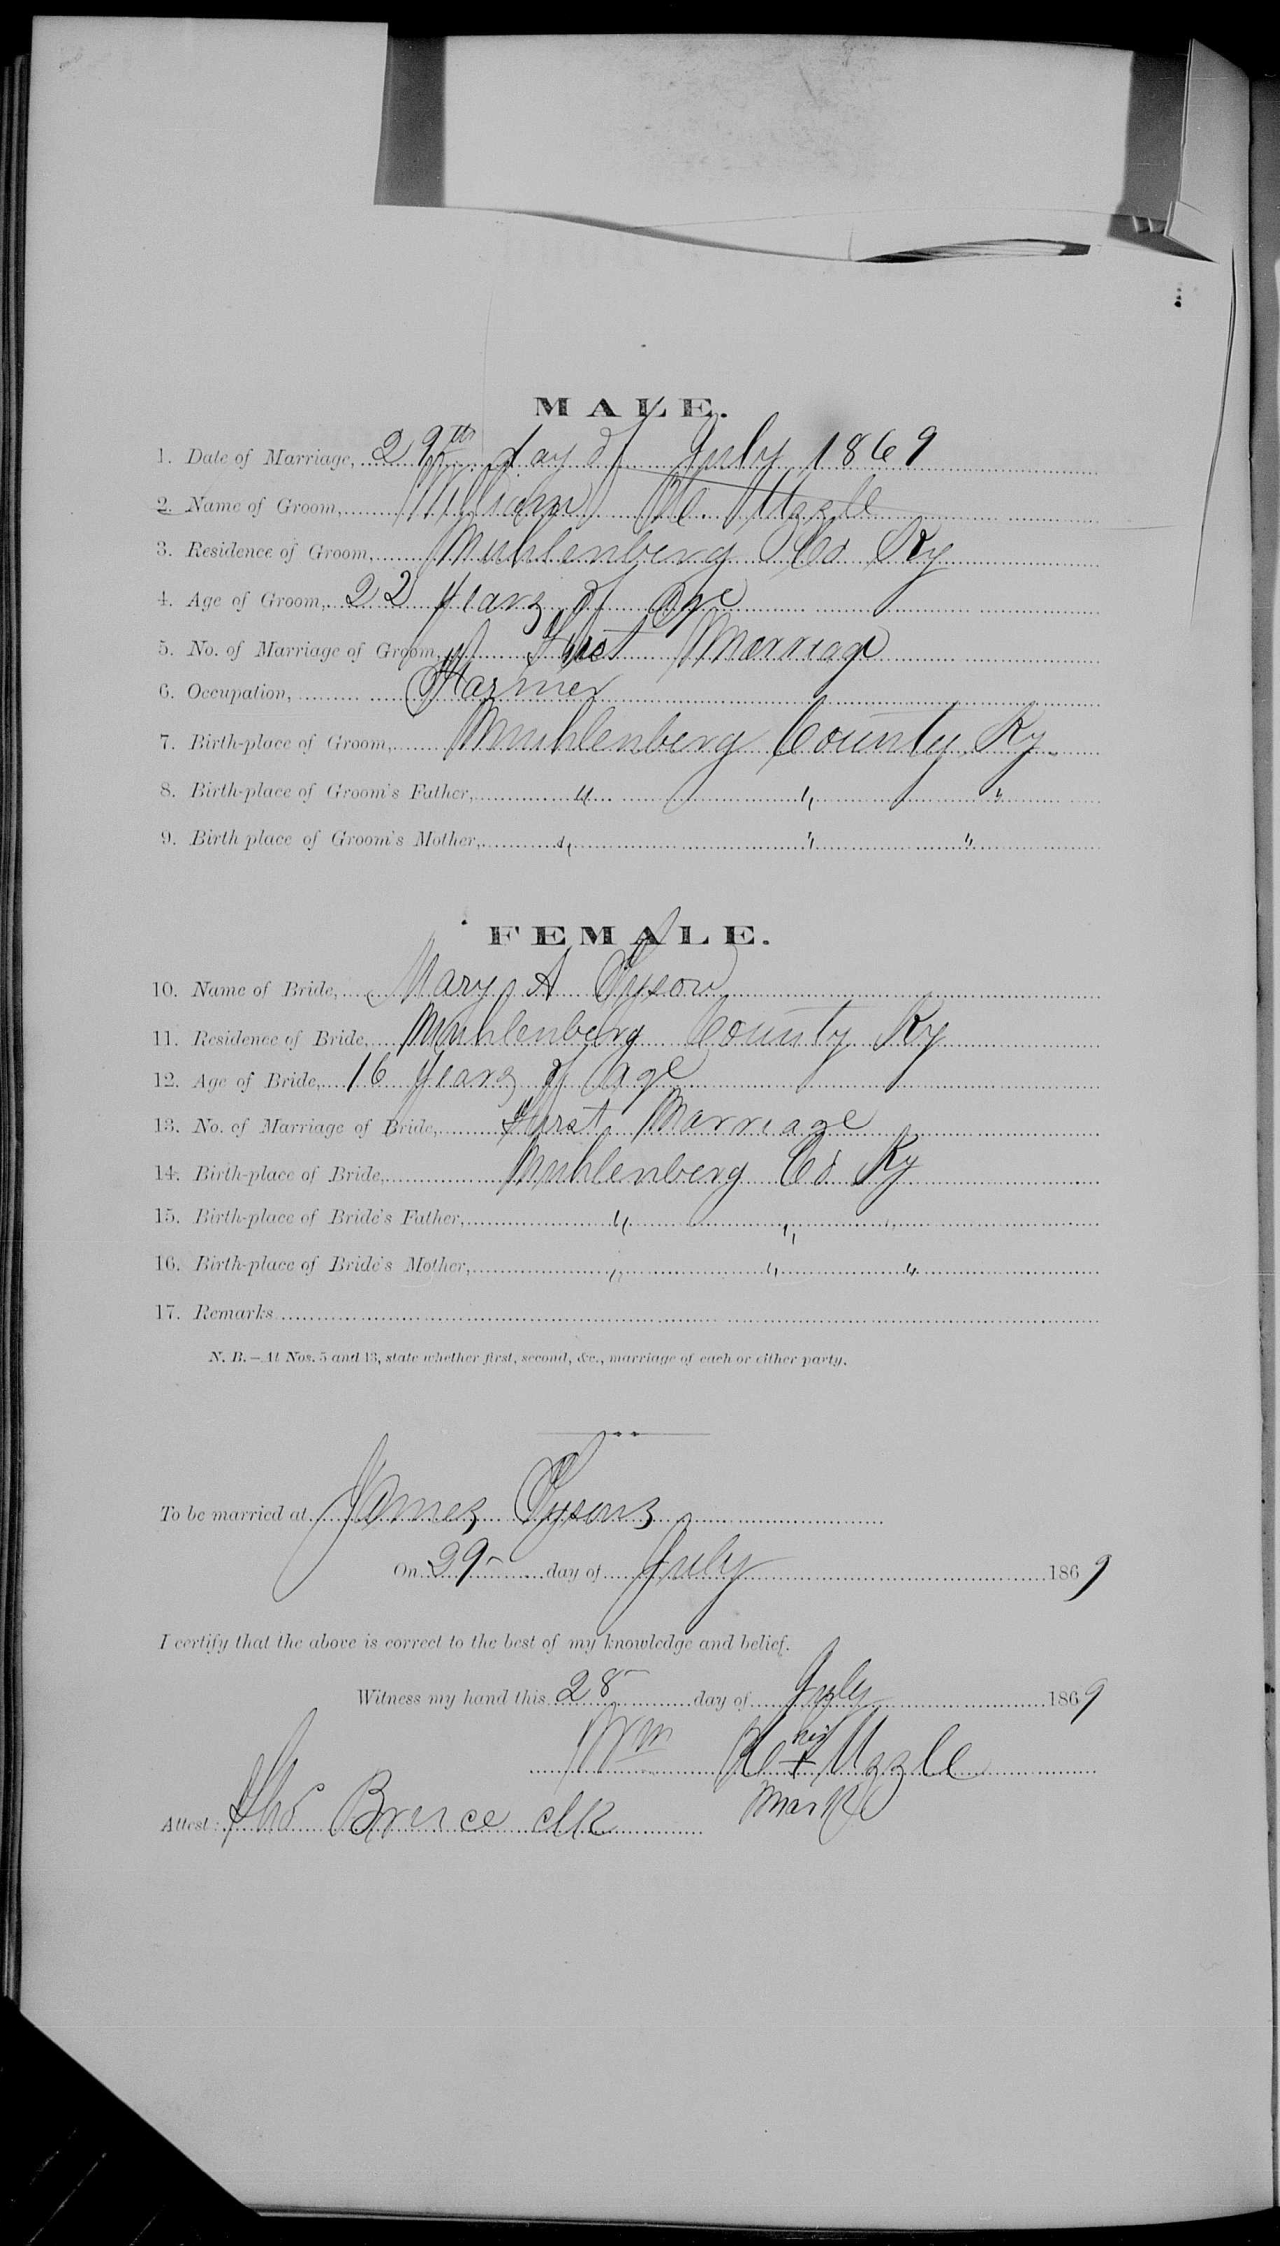 MALE.
1. Date of Marriage, 29th day of July 1869
2. Name of Groom, William H. Uzzle
3. Residence of Groom, Muhlenberg Co Ky
4. Age of Groom, 22 years of age
5. No. of Marriage of Groom, First Marriage
6. Occupation, Farmer
7. Birth-place of Groom, Muhlenberg County Ky.
8. Birth-place of Groom's Father, " " "
9. Birth-place of Groom's Mother, " " "
FEMALE.
10. Name of Bride, Mary A Tyson
11. Residence of Bride, Muhlenberg County Ky
12. Age of Bride, 16 years of age
13. No. of Marriage of Bride, First Marriage
14. Birth-place of Bride, Muhlenberg Co Ky
15. Birth-place of Bride's Father, " " "
16. Birth-place of Bride's Mother, " " "
17. Remarks
N. B.—At Nos. 5 and 13, state whether first, second, &c., marriage of each or either party.
To be married at James Tysons
On 29 day of July 1869
I certify that the above is correct to the best of my knowledge and belief.
Witness my hand this 28 day of July 1869
his
Wm H + Uzzle
mark
Attest: Thos Bruce clk